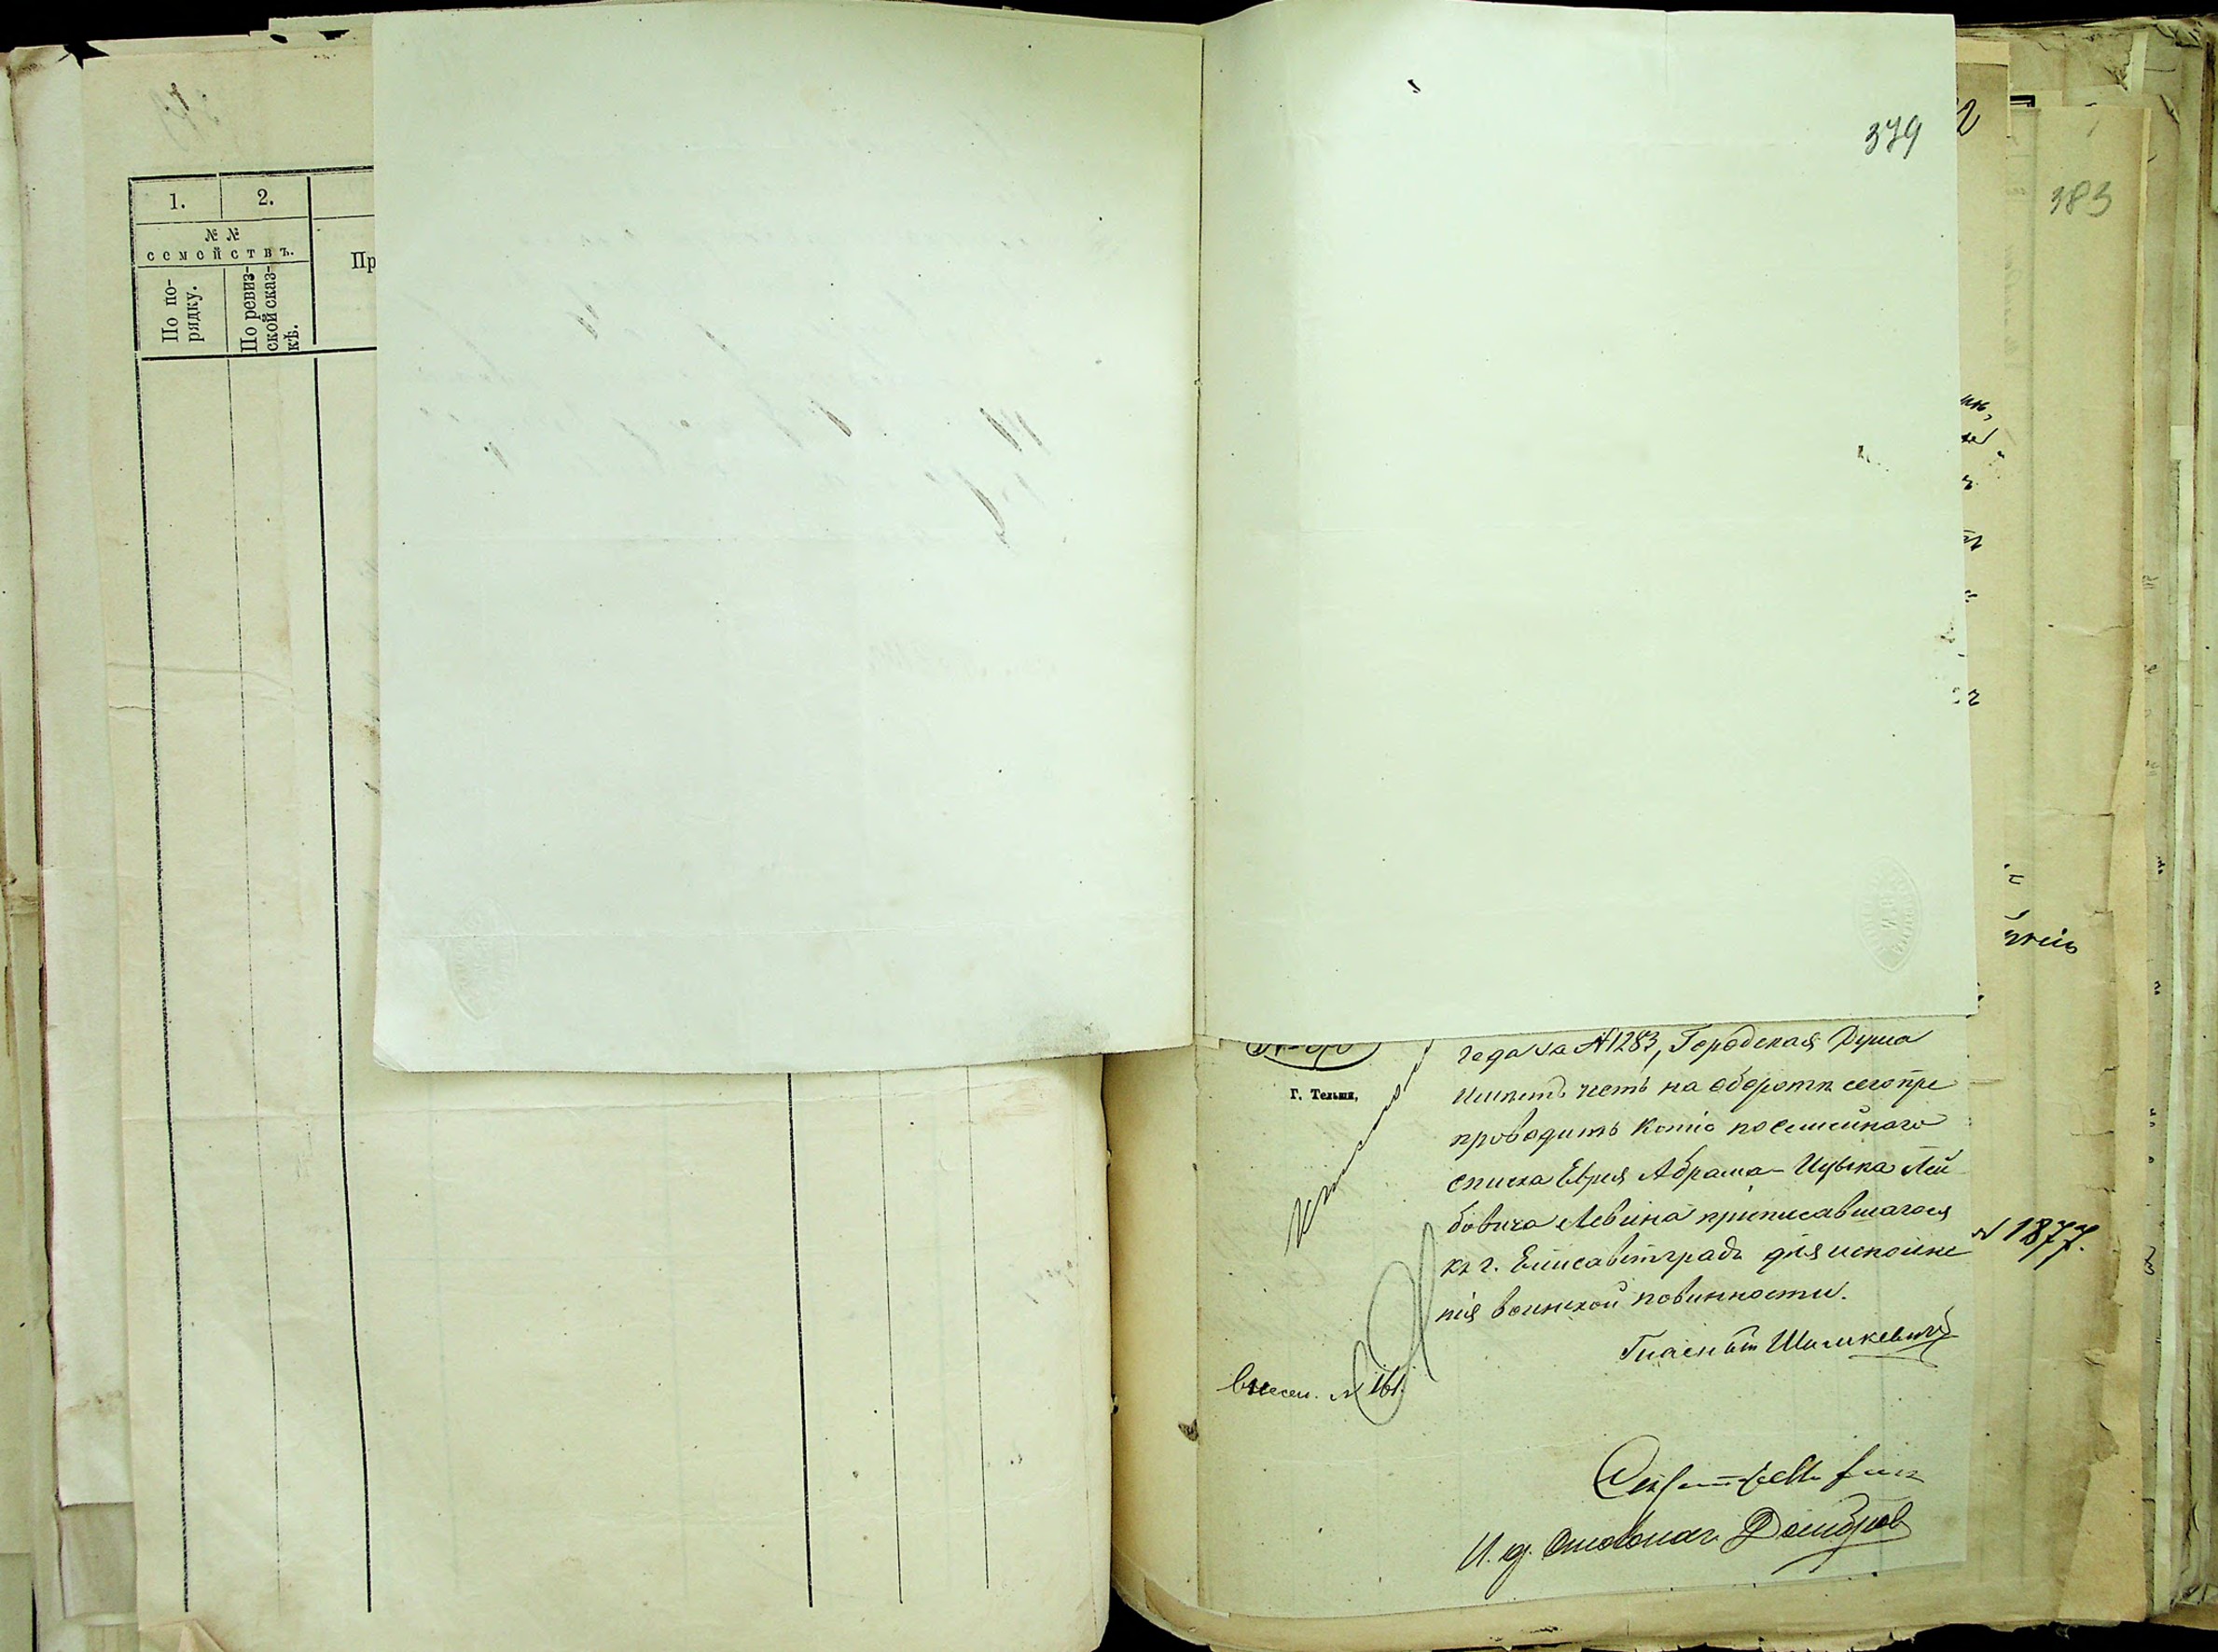 379
383
1.
2.
№ №
семействъ.
По по-
рядку.
По ревиз-
ской сказ-
кѣ.
Пр
года за №1283, Городская Дума
Г. Тельши,
имѣетъ честь на оборотѣ сего пре
проводить копію посемейнаго
списка Еврея Абрама-Ицыка Лей
бовича Левина приписавшагося
къ г. Елисаветградъ для исполне
нія воинской повинности.
№ 1877.
Гласный Шимкевичъ
№ 161.
И. д. Столонач. Домбров